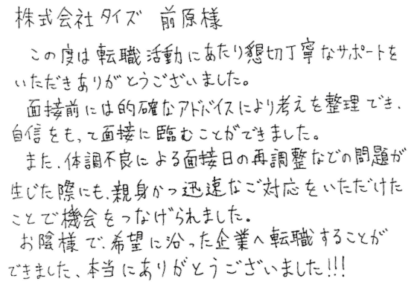 株式会社タイズ 前原様
この度は転職活動にあたり懇切丁寧なサポートを
いただきありがとうございました。
面接前には的確なアドバイスにより考えを整理でき、
自信をもって面接に臨むことができました。
また、体調不良による面接日の再調整などの問題が
生じた際にも、親身かつ迅速なご対応をいただけた
ことで機会をつなげられました。
お陰様で、希望に沿った企業へ転職することが
できました、本当にありがとうございました!!!